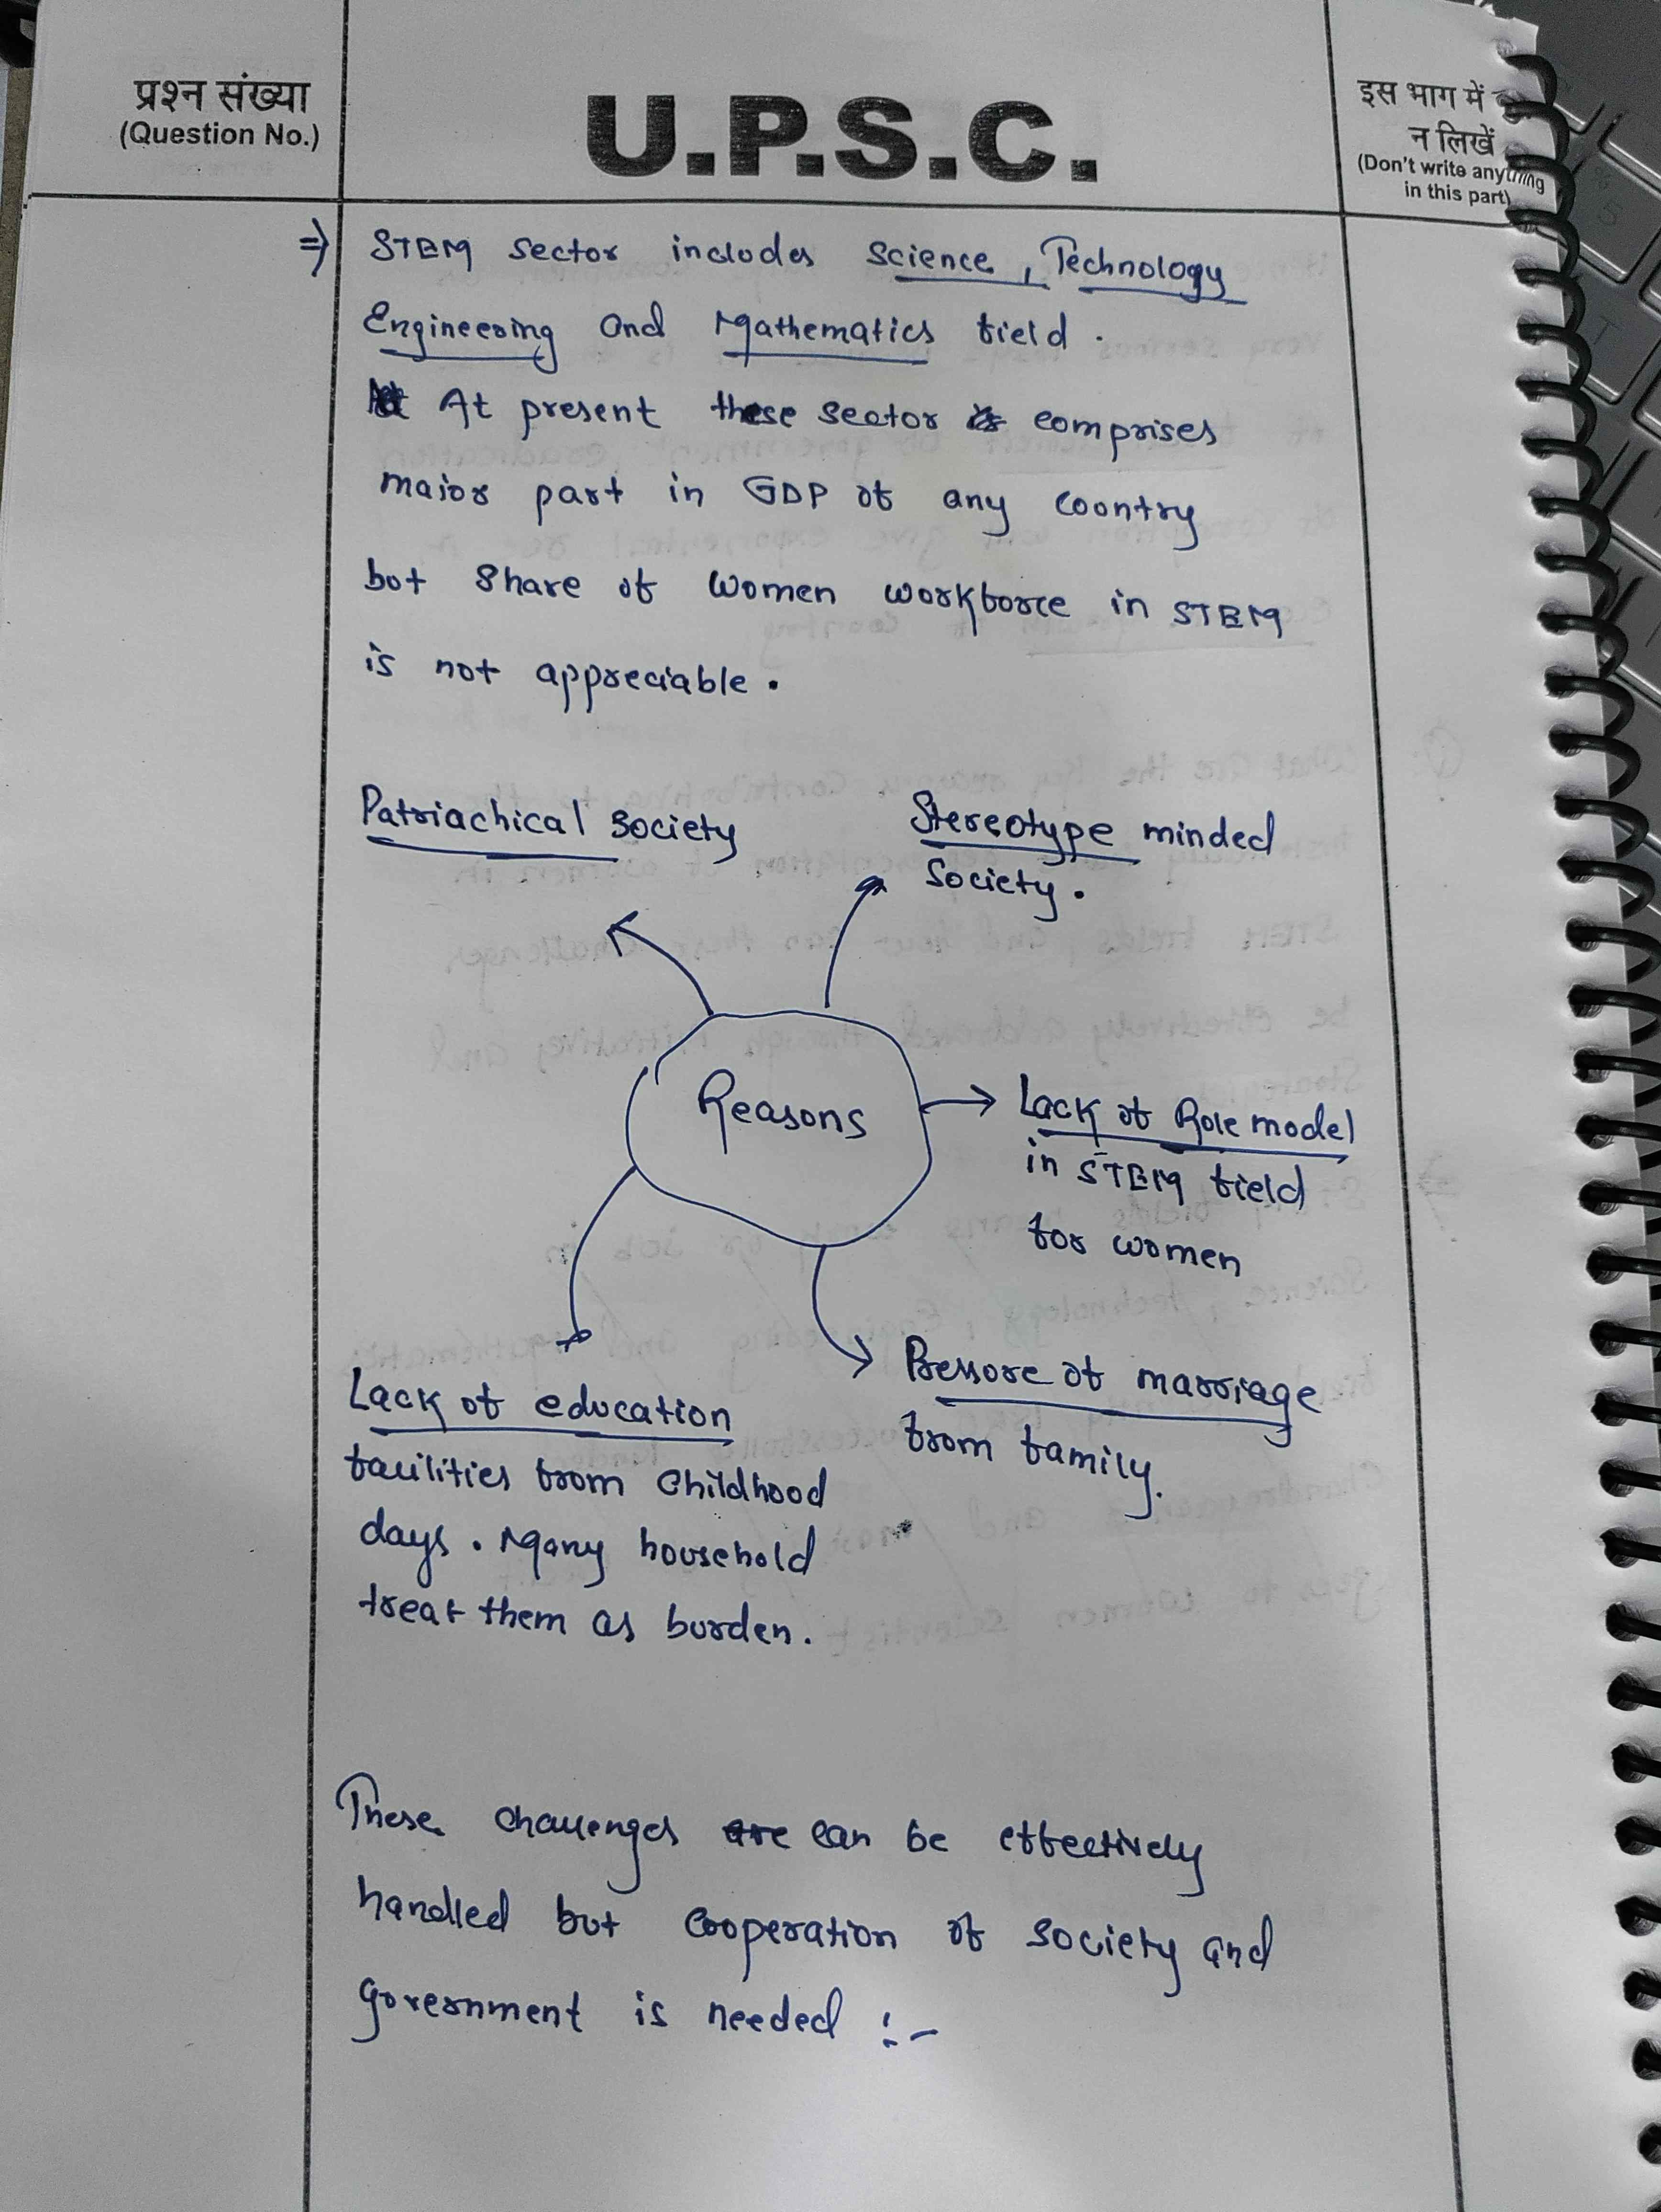 प्रश्न संख्या
(Question No.)
U.P.S.C.
इस भाग में
न लिखें
(Don't write anything
in this part)
⇒ STEM sector includes Science, Technology
Engineering and Mathematics field.
At present these sector comprises
major part in GDP of any country
but share of women workforce in STEM
is not appreciable.
Patriachical society
Stereotype minded
society.
Reasons
Lack of Role model
in STEM field
for women
Pressure of marriage
from family.
Lack of education
facilities from childhood
days. Many household
treat them as burden.
These challenges are can be effectively
handled but cooperation of society and
government is needed :-